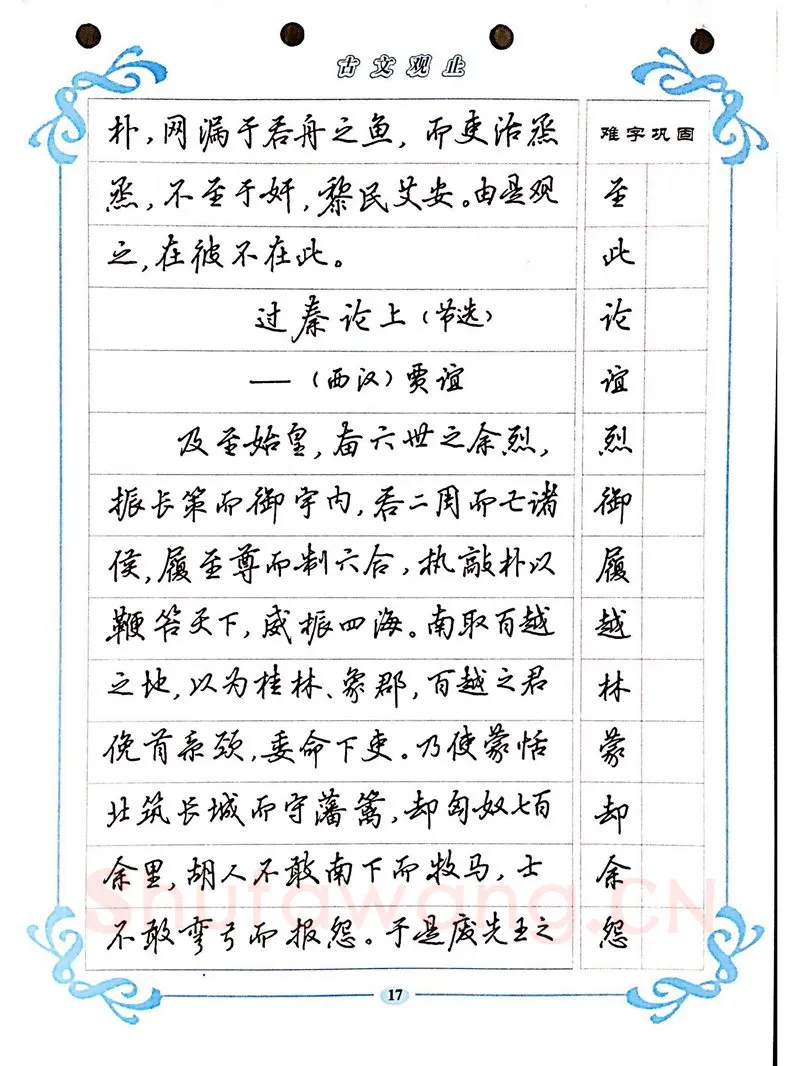 古文观止
朴，网漏于吞舟之鱼，而吏治烝
烝，不至于奸，黎民艾安。由是观
之，在彼不在此。
过秦论上（节选）
——（西汉）贾谊
及至始皇，奋六世之余烈，
振长策而御宇内，吞二周而亡诸
侯，履至尊而制六合，执敲朴以
鞭笞天下，威振四海。南取百越
之地，以为桂林、象郡，百越之君
俛首系颈，委命下吏。乃使蒙恬
北筑长城而守藩篱，却匈奴七百
余里，胡人不敢南下而牧马，士
不敢弯弓而报怨。于是废先王之
难字巩固
至
此
论
谊
烈
御
履
越
林
蒙
却
余
怨
Shufawang.CN
17